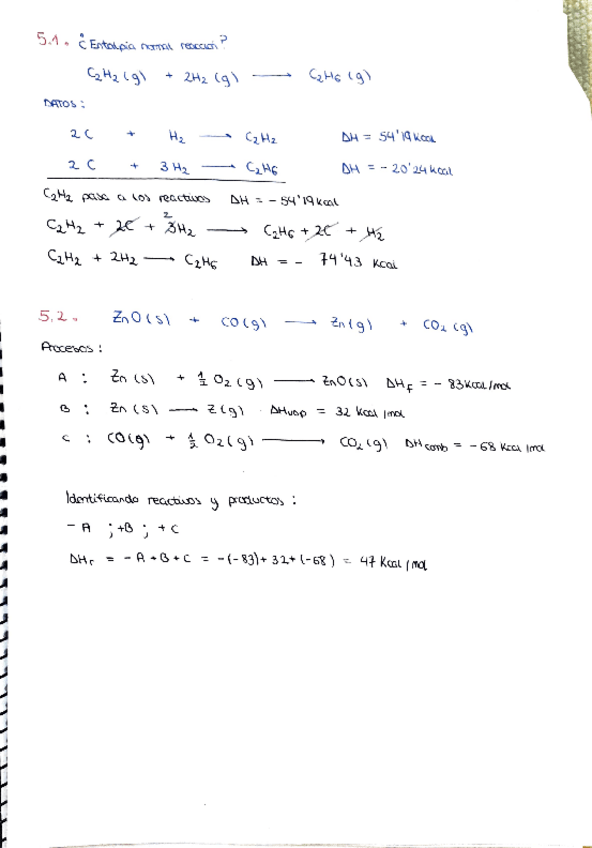 5.1. ¿Entalpía normal reacción?
C₂H₂ (g) + 2H₂ (g) ⟶ C₂H₆ (g)
DATOS:
2C + H₂ ⟶ C₂H₂ ΔH = 54'19 Kcal
2C + 3H₂ ⟶ C₂H₆ ΔH = -20'24 Kcal
C₂H₂ pasa a los reactivos ΔH = -54'19 Kcal
2
C₂H₂ + 2C + 3H₂ ⟶ C₂H₆ + 2C + H₂
C₂H₂ + 2H₂ ⟶ C₂H₆ ΔH = - 74'43 Kcal
5.2. ZnO (s) + CO (g) ⟶ Zn (g) + CO₂ (g)
Procesos:
A : Zn (s) + ½ O₂ (g) ⟶ ZnO (s) ΔHf = - 83 Kcal/mol
B : Zn (s) ⟶ Z (g) . ΔHvap = 32 Kcal/mol
C : CO (g) + ½ O₂ (g) ⟶ CO₂ (g) ΔHcomb = -68 Kcal/mol
Identificando reactivos y productos:
- A ; +B ; + C
ΔHr = - A + B + C = -(-83) + 32 + (-68) = 47 Kcal/mol